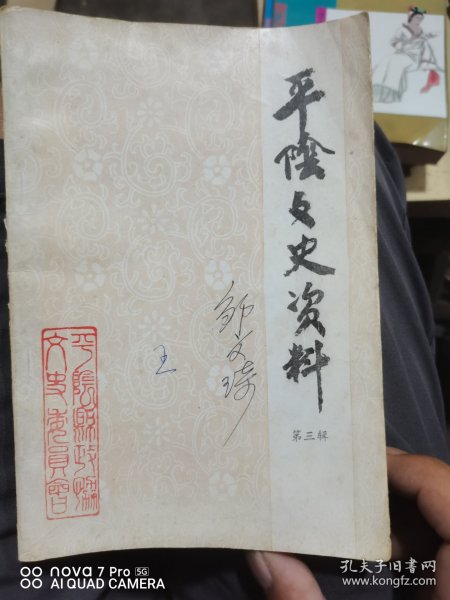 平陰文史资料
第三辑
邹文琦
王
平陰縣政協
文史委員會
nova 7 Pro 5G
AI QUAD CAMERA
孔夫子旧书网
www.kongfz.com